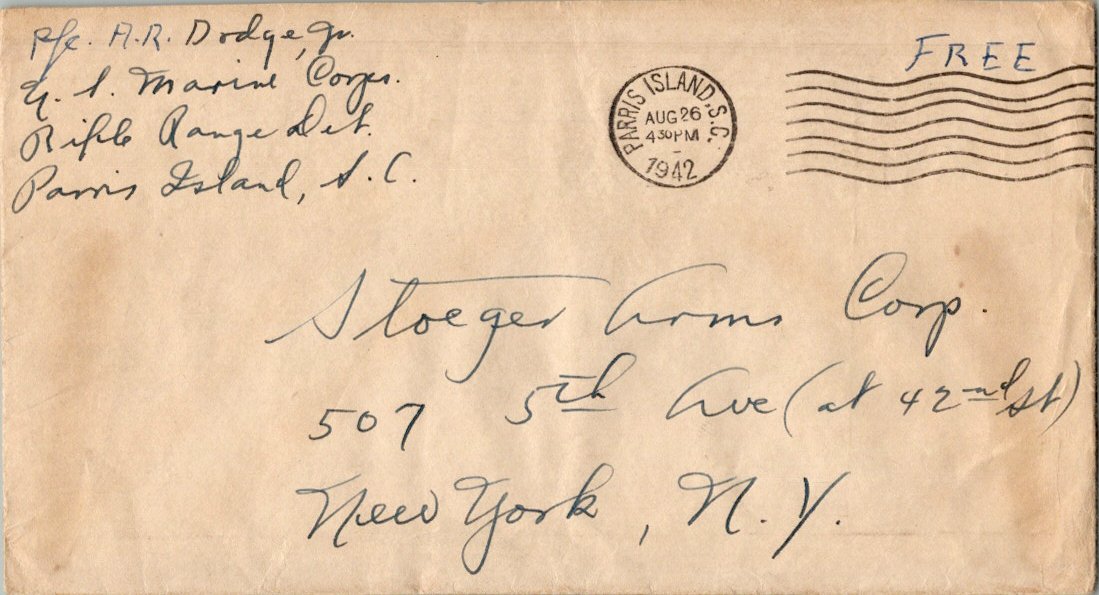 Pfc. A.R. Dodge, Jr.
U.S. Marine Corps.
Rifle Range Det.
Parris Island, S.C.
PARRIS ISLAND, S.C.
AUG 26
430 PM
1942
FREE
Stoeger Arms Corp.
507 5th Ave (at 42nd St)
New York, N.Y.